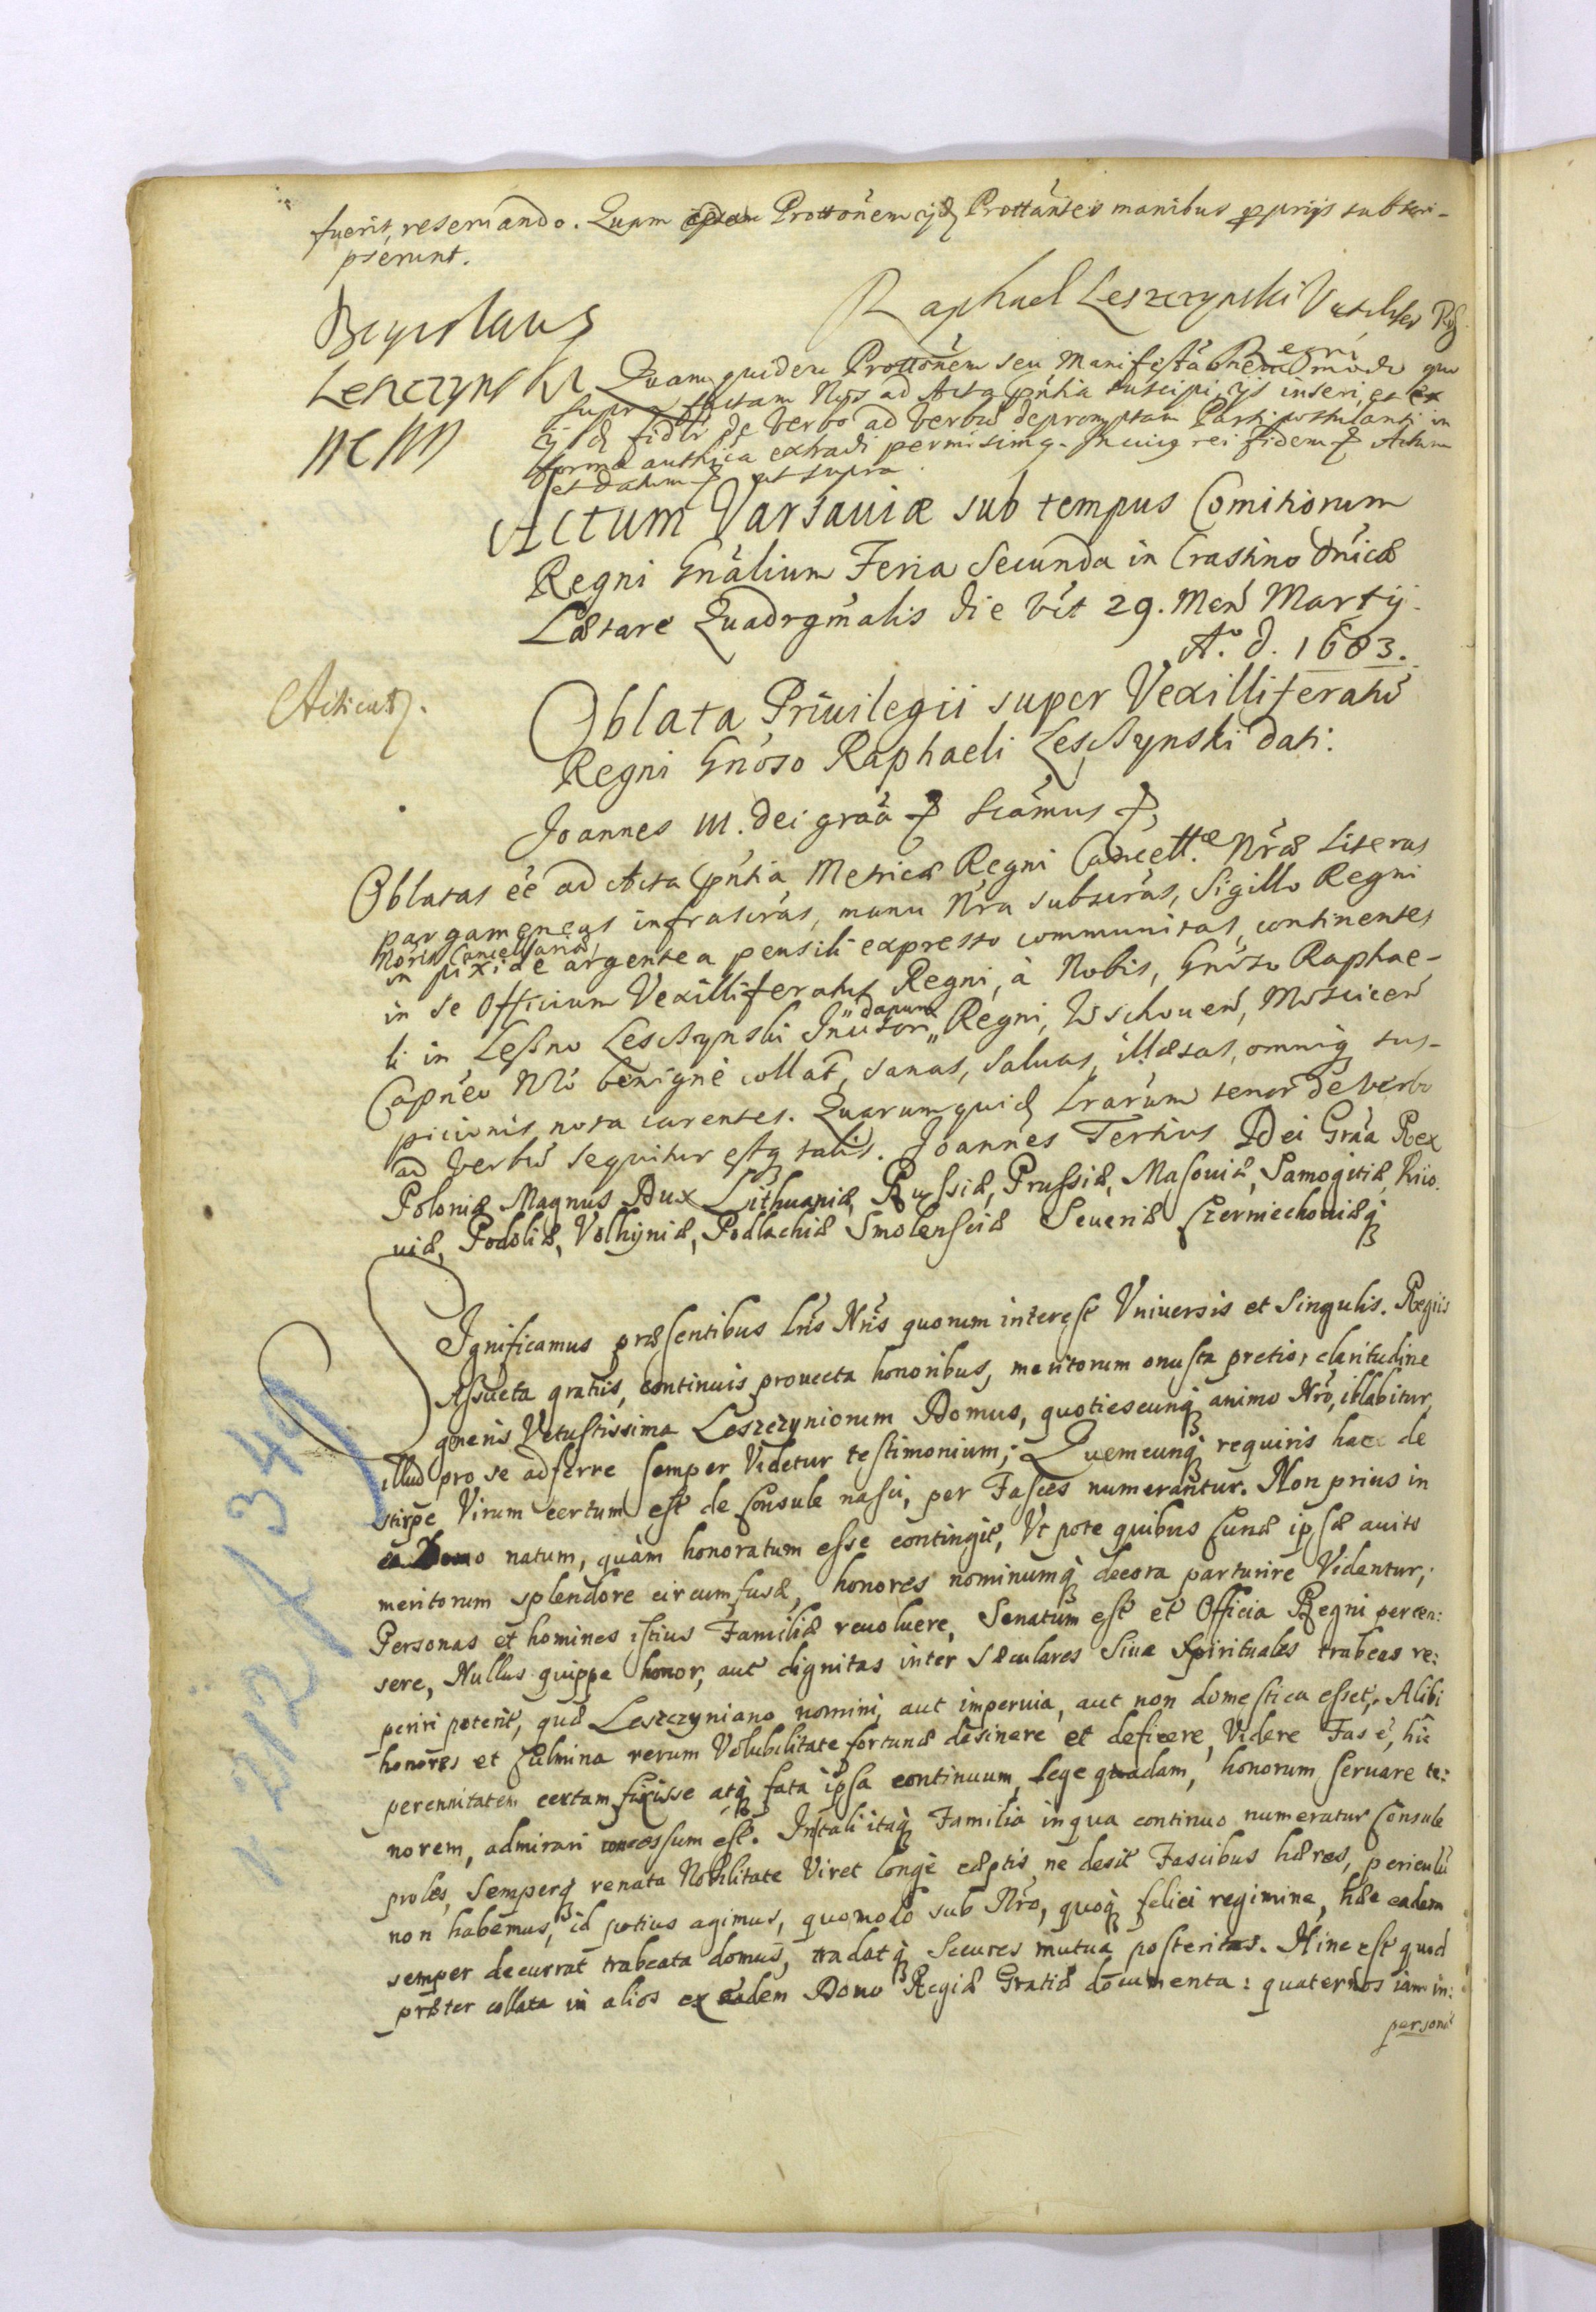 fuerit, reseruando. Quam Prottõnem ijd Prottantes manibus pprijs subscri-
pserunt.
Raphael Leszczynski Vexilifer Rg
Bogustaus
Leszczynski
Quam quidem Prottõnem seu Manifestãonem modo quo
supra factam Nos ad Acta pñtia suscipi, ijs inseri, et ex
fidlr de verbo ad verbũ depromptam Parti postulanti in
forma authca extradi permisimq. In cuiq rei fidem Actum
et datum ut supra
Actum Varsauiæ sub tempus Comitiorum
Regni Gnãlium Feria Secunda in Crastino dnicæ
Lætare Quadrgmalis die vlt 29. Men Martij
A.o d. 1683.
Acticat.
Oblata Priuilegii super Vexilliferatũ
Regni Gnoso Raphaeli Leschynski dati.
Joannes III. dei graã Sciamus
Oblatas eẽ ad Acta pñtia Metricæ Regni Cancell.æ Nræ Literas
pargameneas infrascras, manu Nra subscras, Sigillo Regni
Maris Cancellariæ
in pixide argentea pensili expresso communitas, continentes
in se Officium Vexilliferatus Regni, à Nobis, Gnoso Raphae-
li in Lesno Leschynski Incisori Regni, Wschouen, Moscicen
dapum
Capneo Nro benignè collat, sanas, saluas, illæsas, omniq sus-
picionis nota carentes. Quarum quid Lrarum tenor de verbo
ad verbũ sequitur estq talis. Joannes Tertius Dei Grãa Rex
Poloniæ Magnus Dux Lithuaniæ, Russiæ, Prussiæ, Masouiæ, Samogitiæ, Kiio.
uiæ, Podoliæ, Volhyniæ, Podlachiæ Smolensciæ Seueriæ Czerniechouiæq
SIgnificamus præsentibus Lris Nris quorum interest Vniuersis et Singulis. Regiis
Assueta gratiis, continuis prouecta honoribus, meritorum onusta pretio, claritudine
generis Vetustissima Leszczyniorum Domus, quotiescunq animo Nro, illabitur,
illud pro se adferre semper Videtur testimonium; Quemcunq requiris hac de
stirpe Virum certum est de Consule nasci, per Fasces numerantur. Non prius in
ea Domo natum, quàm honoratum esse contingit, Vt pote quibus Cunæ ipsæ auito
meritorum splendore circumfusæ, honores nominumq decora parturire Videntur,
Personas et homines istius Familiæ reuoluere, Senatum est et Officia Regni percen:
sere, Nullus quippe honor, aut dignitas inter Sæculares Siue Spirituales trabeas re:
periri poterit, quæ Leszczyniano nomini, aut imperuia, aut non domestica esset, Alibi
honores et Culmina rerum Volubilitate fortunæ desinere et deficere, Videre Fas ẽ, hic
perennitatem certam fixisse atq fata ipsa continuum, lege quadam, honorum seruare te:
norem, admirari concessum est. In tali itaq Familia in qua continuo numeratur Consule
proles, Semperq renata Nobilitate Viret longè cæptis, ne desit Fascibus hæres, periculũ
non habemus, id potius agimus, quomodo sub Nro, quoq felici regimine, hæc eadem
semper decurrat trabeata domus, tradatq Secures mutua posteritas. Hinc est quod
præter collata in alios ex eadem Domo Regiæ Gratiæ documenta: quaternos iam in:
personæ